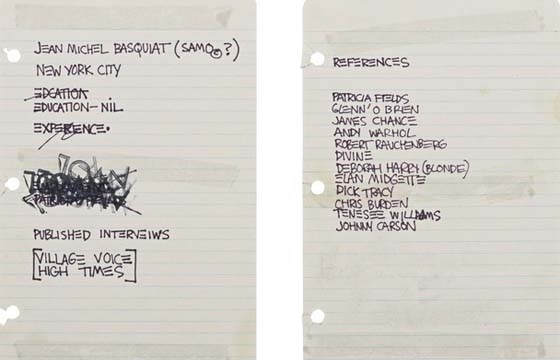 JEAN MICHEL BASQUIAT (SAMO©?)
NEW YORK CITY
EDCATION
EDUCATION – NIL
EXPERIENCE.
PUBLISHED INTERVEIWS
[VILLAGE VOICE
HIGH TIMES]
REFERENCES
PATRICIA FIELDS
GLENN' O BREN
JAMES CHANCE
ANDY WARHOL
ROBERT RAUCHENBERG
DIVINE
DEBORAH HARRY (BLONDE)
ELAN MIDGETTE
DICK TRACY
CHRIS BURDEN
TENESEE WILLIAMS
JOHNNY CARSON